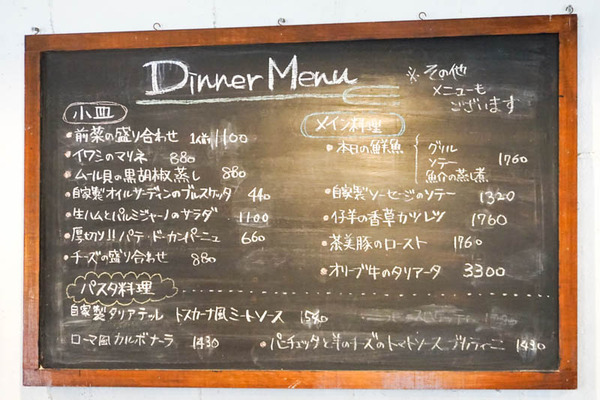 Dinner Menu
※その他
メニューも
ございます
小皿
・前菜の盛り合わせ 1人前 1100
・イワシのマリネ 880
・ムール貝の黒胡椒蒸し 880
・自家製オイルサーディンのブルスケッタ 440
・生ハムとパルミジャーノのサラダ 1100
・厚切り!! パテ・ド・カンパーニュ 660
・チーズの盛り合わせ 880
メイン料理
・本日の鮮魚 グリル
ソテー 1760
魚介の蒸し煮
・自家製ソーセージのソテー 1320
・仔羊の香草カツレツ 1760
・茶美豚のロースト 1760
・オリーブ牛のタリアータ 3300
パスタ料理
自家製タリアテッレ トスカーナ風ミートソース 1580
ローマ風カルボナーラ 1430
・パンチェッタと羊のチーズのトマトソース 1430